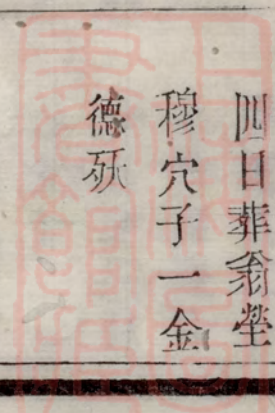 四日葬翁塋
穆穴子一金
德殀